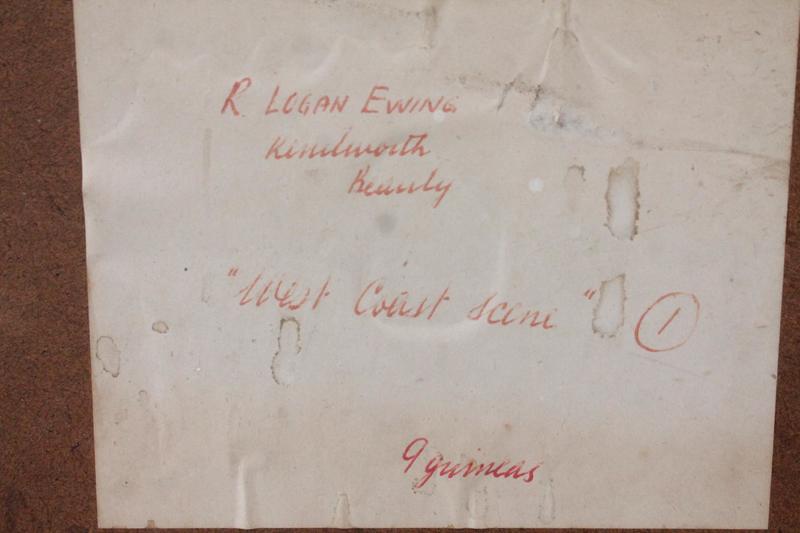 R. LOGAN EWING
Kenilworth
Beauly
"West Coast Scene" 1
9 guineas